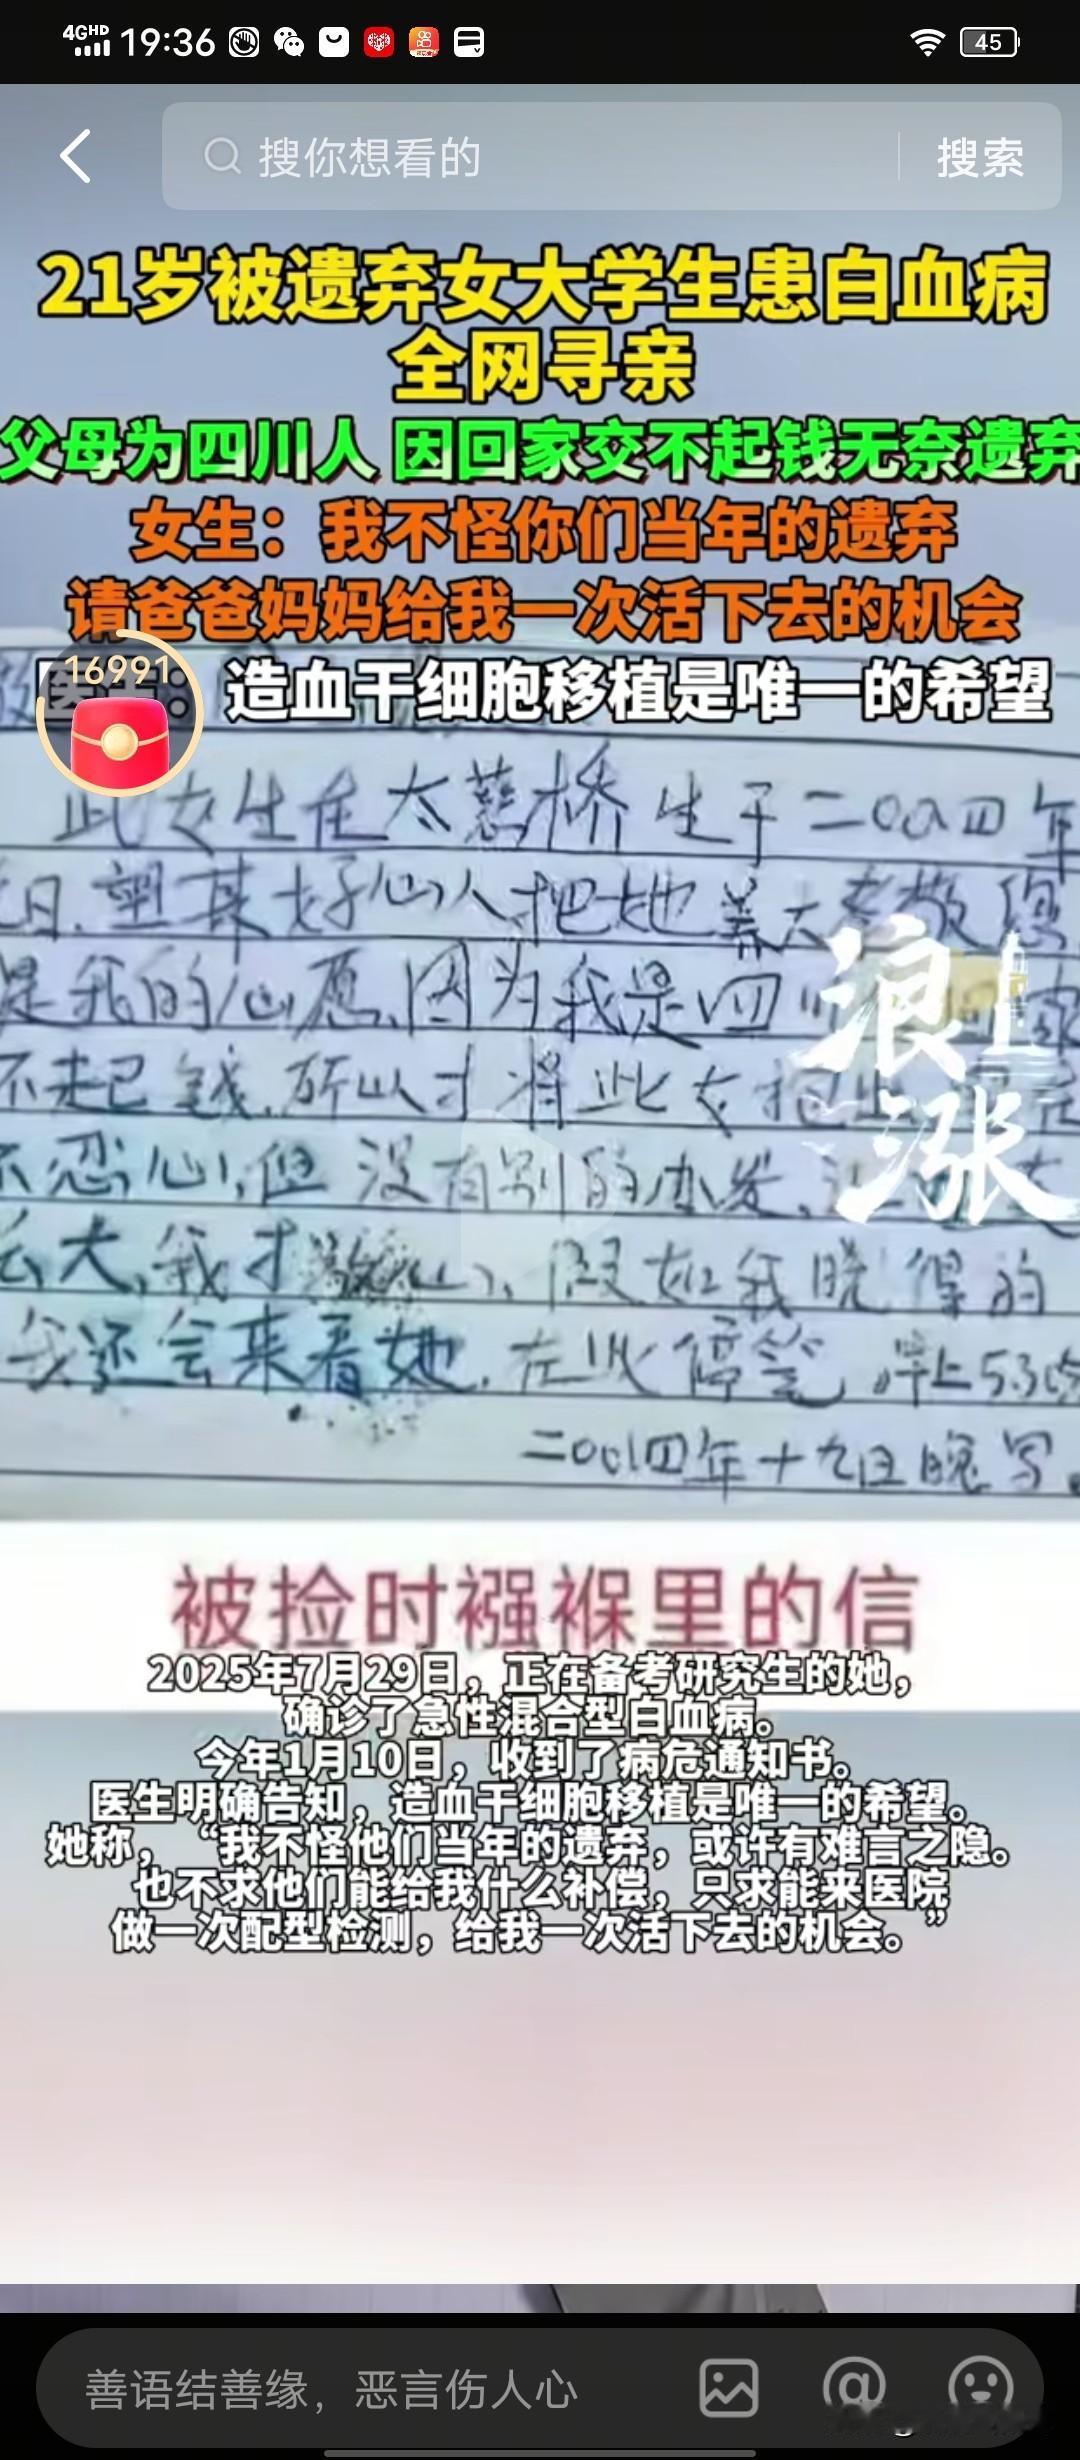 4GHD 19:36 45
搜你想看的 搜索
21岁被遗弃女大学生患白血病
全网寻亲
父母为四川人 因回家交不起钱无奈遗弃
女生：我不怪你们当年的遗弃
请爸爸妈妈给我一次活下去的机会
16991
造血干细胞移植是唯一的希望
此女生在太慈桥 生于二00四年
日,望某好心人把她养大孝敬您
是我的心愿,因为我是四川
不起钱,所以才将此女抱出
不忍心,但没有别的办发,
长大,我才 心,假如我晓得的
我还会来看她,在此停笔 早上5.30
二00四年十九日晚写。
浪上
涨
被捡时襁褓里的信
2025年7月29日，正在备考研究生的她，
确诊了急性混合型白血病。
今年1月10日，收到了病危通知书。
医生明确告知，造血干细胞移植是唯一的希望。
她称，“我不怪他们当年的遗弃，或许有难言之隐。
也不求他们能给我什么补偿，只求能来医院
做一次配型检测，给我一次活下去的机会。”
善语结善缘，恶言伤人心